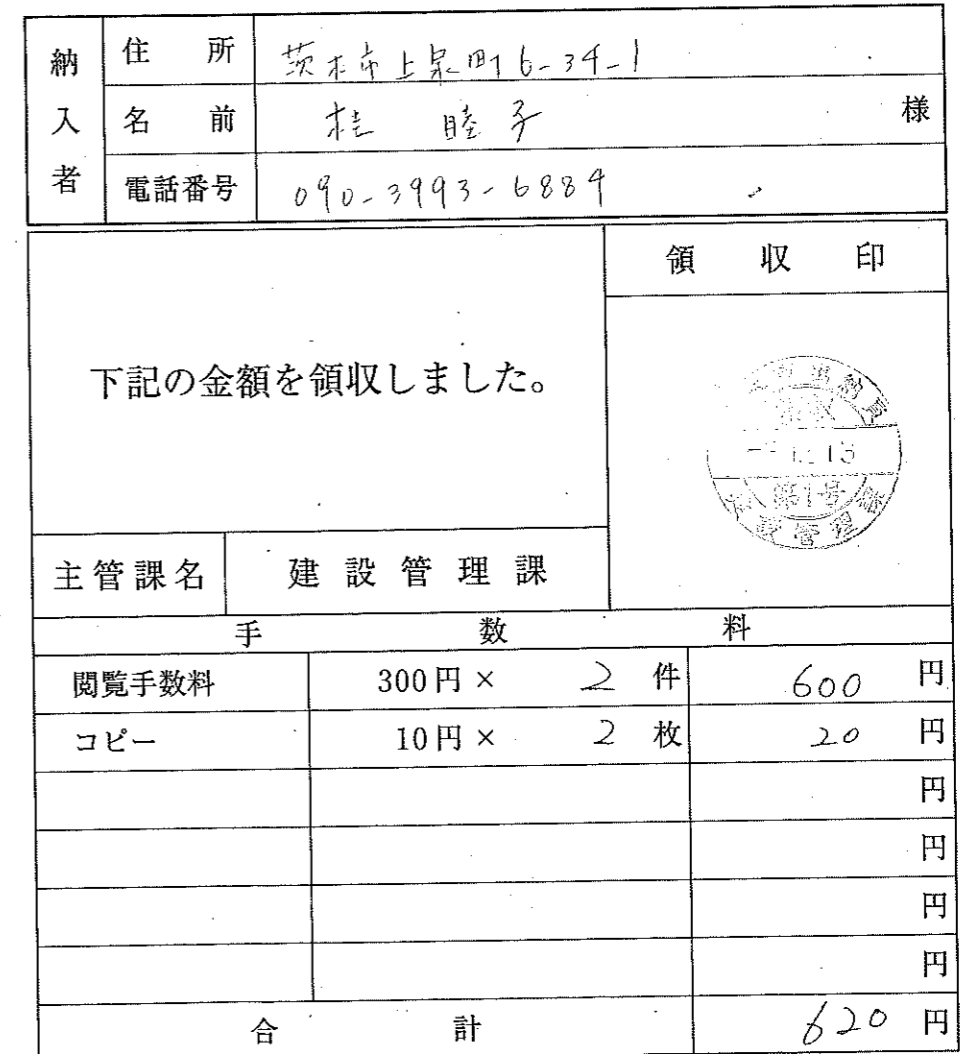 納入者
住所 茨木市上泉町6-34-1
名前 桂 睦子 様
電話番号 090-3993-6884
領収印
下記の金額を領収しました。
出納員
13
第1号
管理課
主管課名 建設管理課
手数料
閲覧手数料 300円× 2 件 600 円
コピー 10円× 2 枚 20 円
円
円
円
円
合計 620 円